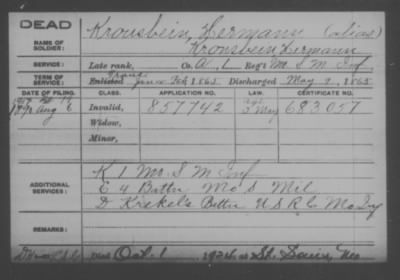 DEAD
NAME OF SOLDIER:
Krousbein, Hermann (alias)
Kronsbein, Hermann
SERVICE:
Late rank, Co. A, 1 Reg't Mo. S M Inf.
TERM OF SERVICE:
Enlisted 1865 Discharged May 9, 1865
DATE OF FILING. CLASS. APPLICATION NO. LAW. CERTIFICATE NO.
Aug 6 Invalid, 857742 683057
Widow,
Minor,
ADDITIONAL SERVICES:
K 1 Mo. S M Inf
E 4 Battn Mo S Mil
D Krekel's Battn U S R C Mo Inf
REMARKS:
Died Oct. 1, 1924, at St. Louis, Mo